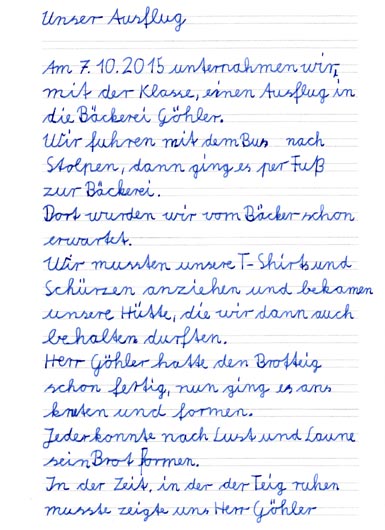 Unser Ausflug
Am 7.10.2015 unternahmen wir,
mit der Klasse, einen Ausflug in
die Bäckerei Göhler.
Wir fuhren mit dem Bus nach
Stolpen, dann ging es per Fuß
zur Bäckerei.
Dort wurden wir vom Bäcker schon
erwartet.
Wir mussten unsere T-Shirts und
Schürzen anziehen und bekamen
unsere Hütte, die wir dann auch
behalten durften.
Herr Göhler hatte den Brotteig
schon fertig, nun ging es ans
kneten und formen.
Jeder konnte nach Lust und Laune
sein Brot formen.
In der Zeit, in der der Teig ruhen
musste zeigte uns Herr Göhler